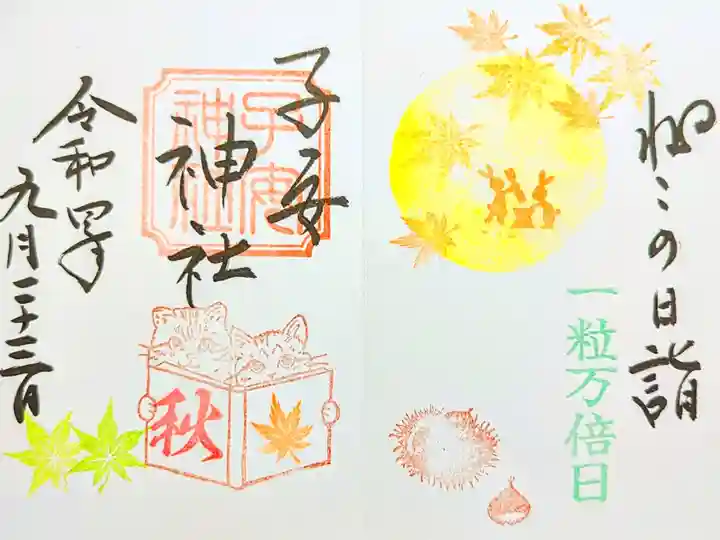 ねこの日詣
一粒万倍日
子安神社
子安
神社
秋
令和四年
九月二十三日